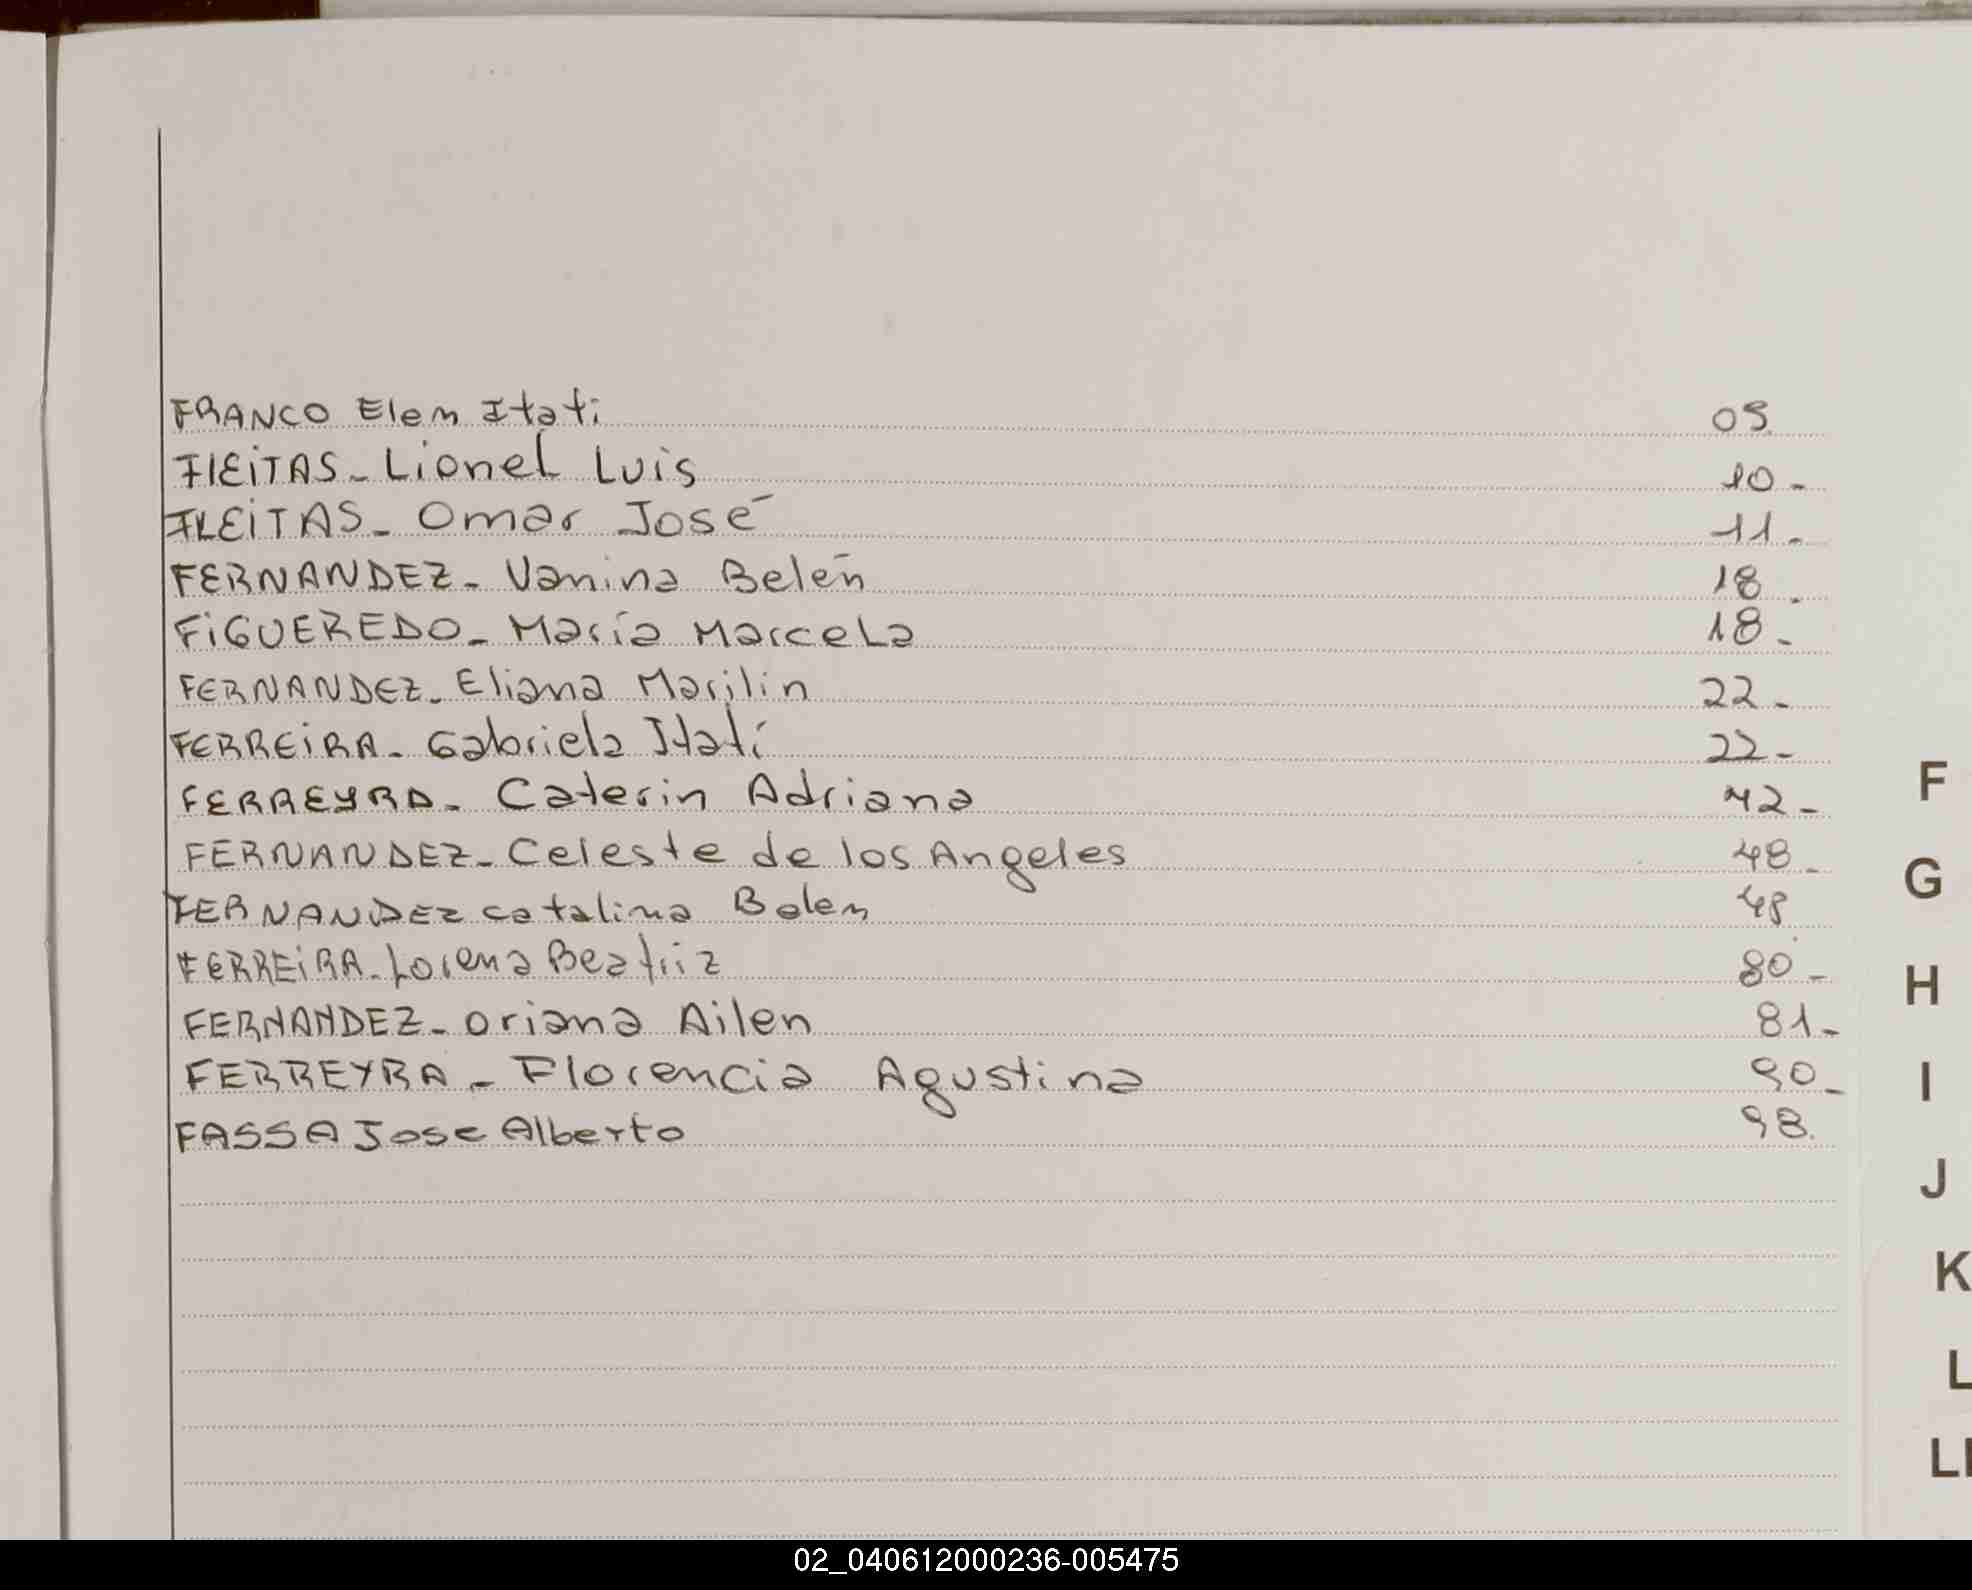 FRANCO Elen Itati 05.
FlEiTAS - Lionel Luis 10 -
FLEiTAS - Omar José 11 -
FERNANDEZ - Vanina Belén 18 -
FiGUEREDO - María Marcela 18 -
FERNANDEZ - Eliana Marilin 22 -
FERREiRA - Gabriela Itatí 22 -
FERREYRA - Caterin Adriana 42 -
FERNANDEZ - Celeste de los Angeles 48 -
FERNANDEZ Catalina Belen 48
FERREiRA - Lorena Beatriz 80 -
FERNANDEZ - Oriana Ailen 81 -
FERREYRA - Florencia Agustina 90 -
FASSA Jose Alberto 98.
F
G
H
I
J
K
L
LL
02_040612000236-005475